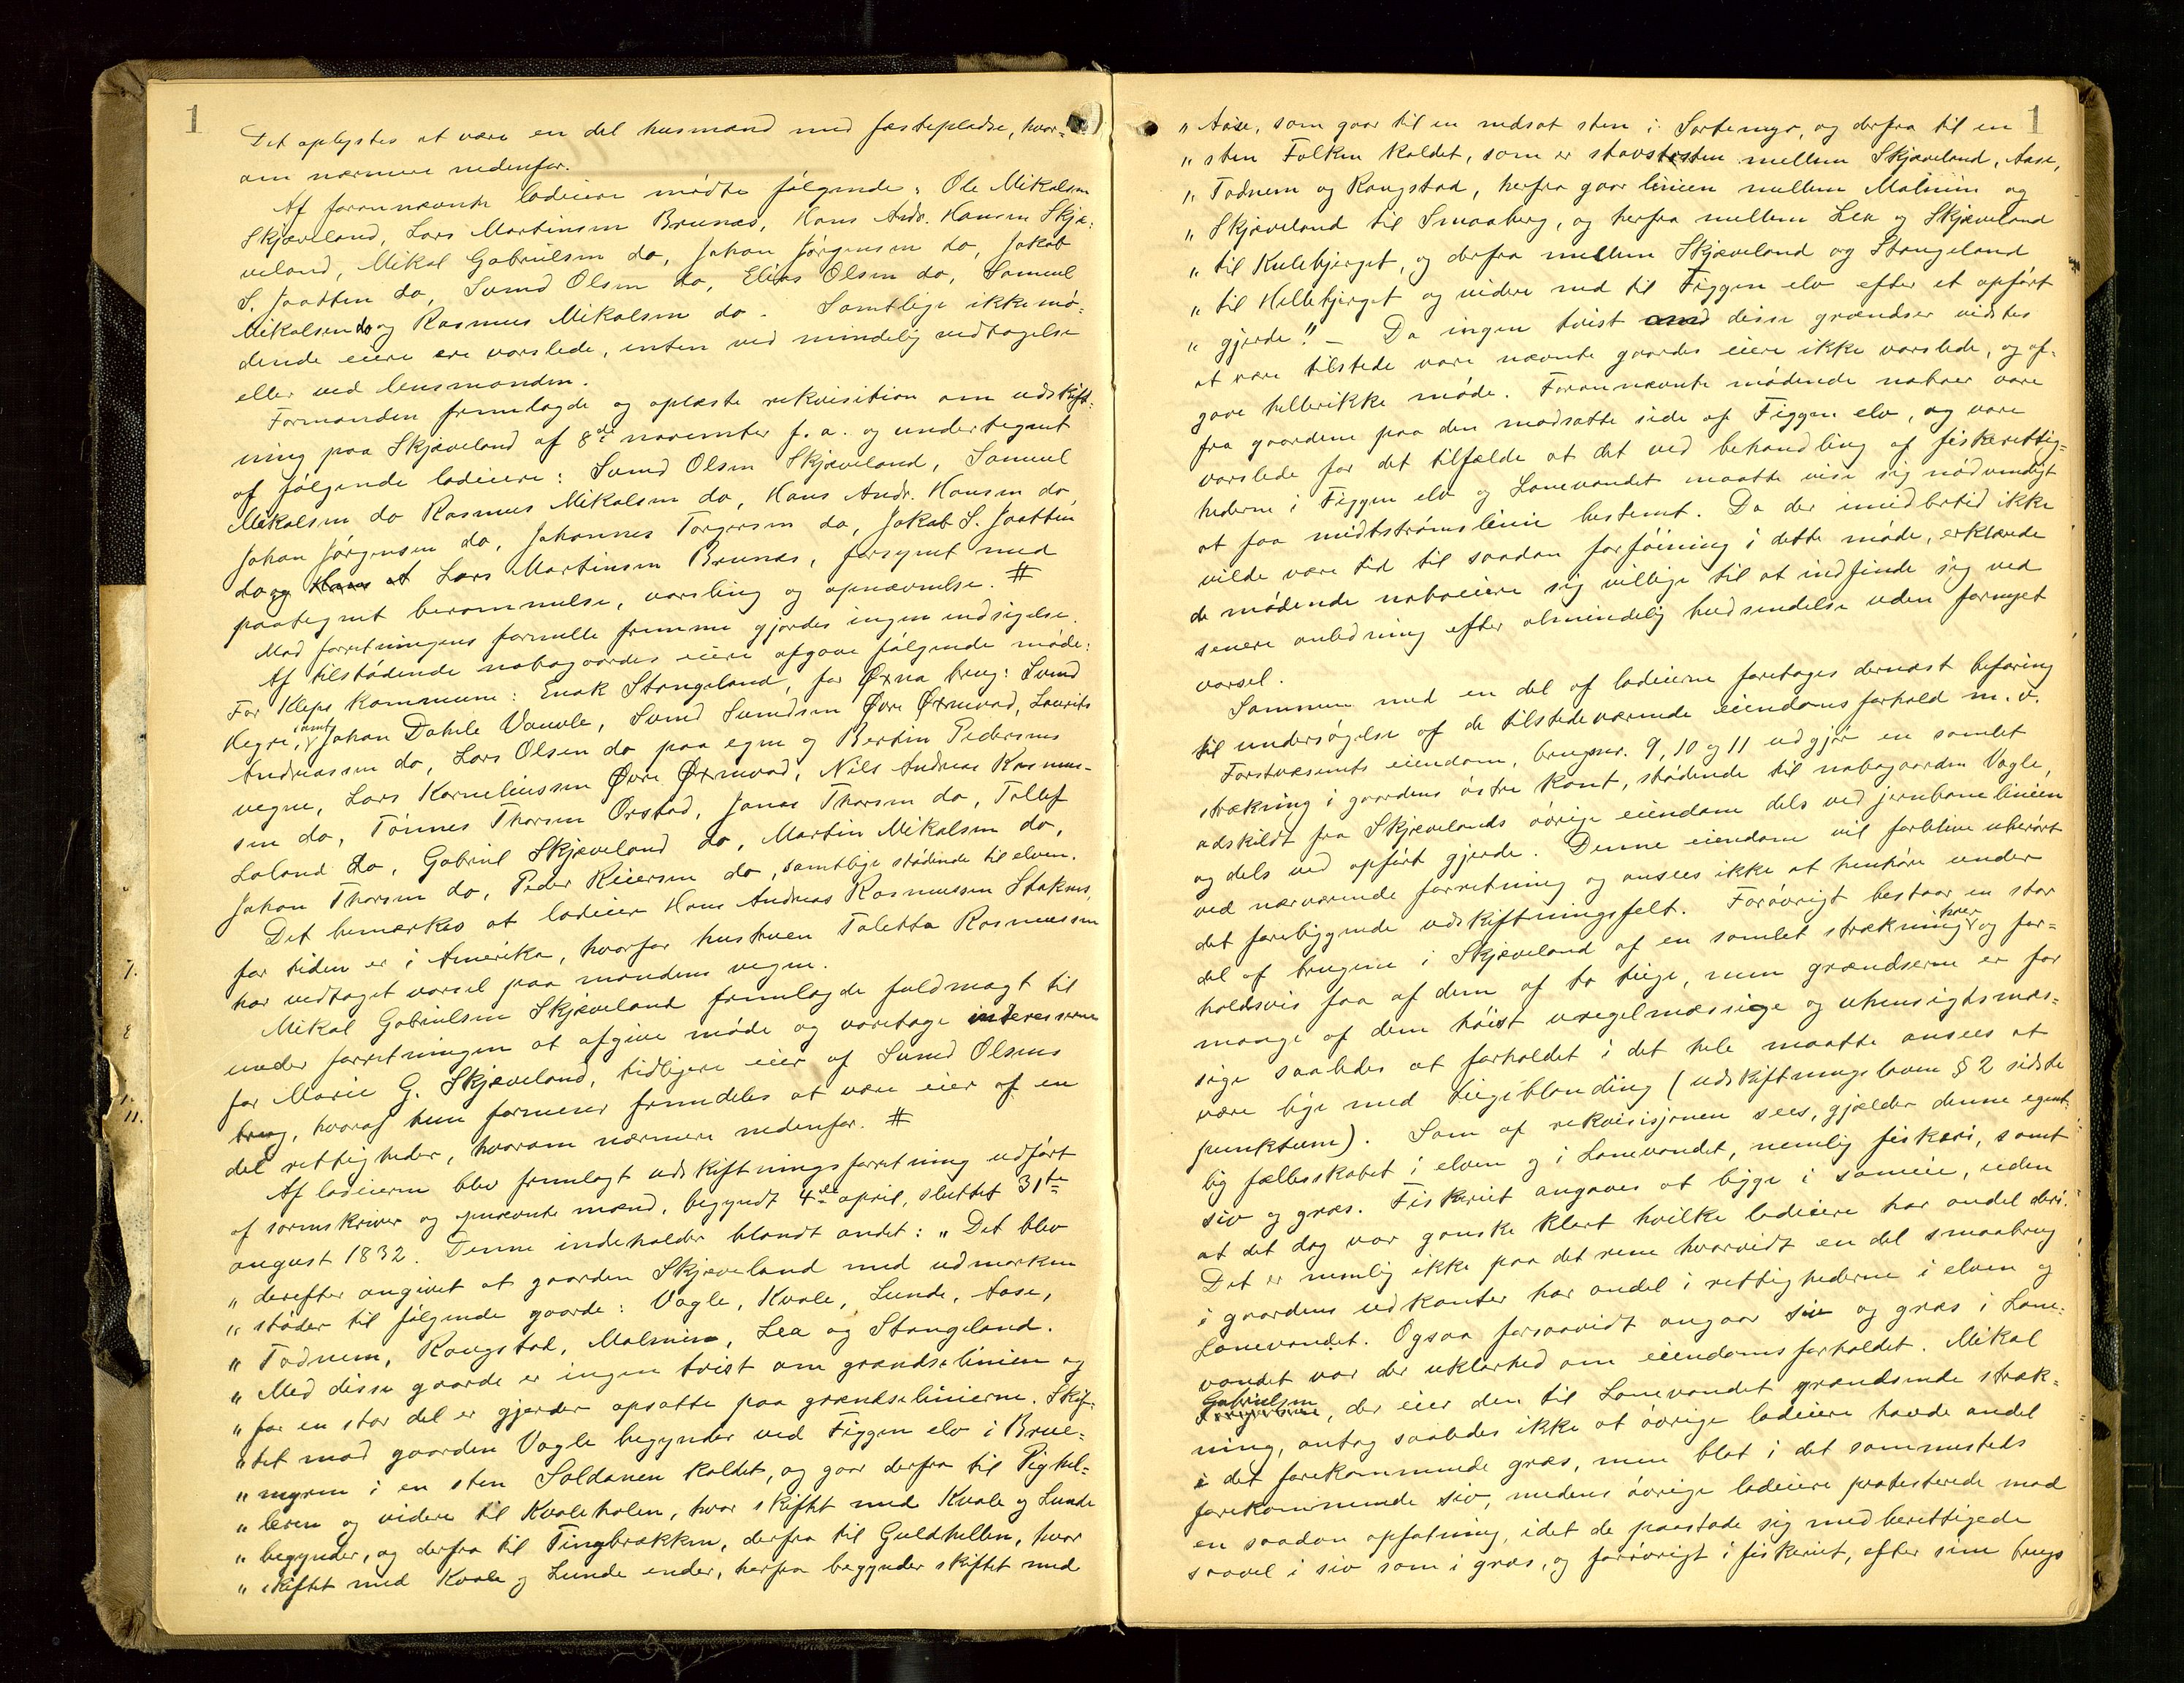 1
Det oplystes at være en del husmænd med fæstepladse, hvor-
om nærmere nedenfor.
Af forannævnte lodeiere mødte følgende: Ole Mikalsen
Skjæveland, Lars Martinsen Brunæs, Hans Andr. Hansen Skjæ-
veland, Mikal Gabrielsen do, Johan Jørgensen do, Jakob
S. Jaatten do, Svend Olsen do, Elias Olsen do, Samuel
Mikalsen do og Rasmus Mikalsen do. Samtlige ikke mø-
dende eiere ere varslede, enten ved mindelig vedtagelse
eller ved lensmanden.
Formanden fremlagde og oplæste rekvisition om udskift-
ning paa Skjæveland af 8de november f. a. og undertegnet
af følgende lodeiere: Svend Olsen Skjæveland, Samuel
Mikalsen do Rasmus Mikalsen do, Hans Andr. Hansen do,
Johan Jørgensen do, Johannes Torgersen do, Jakob S. Jaatten
do og Hans A Lars Martinsen Brunæs, forsynet med
paategnet berammelse, varsling og opnævnelse. #
Mod forretningens formelle fremme gjordes ingen indsigelse.
Af tilstødende nabogaardes eiere afgave følgende møde:
For Kleps kommune: Enok Stangeland, for Øxna brug: Svend
Hegre, samt Johan Dahle Vaule, Svend Svendsen Øvre Øxnevad, Laurits
Andreassen do, Lars Olsen do paa egne og Bertin Pedersens
vegne, Lars Korneliussen Øvre Øxnevad, Nils Andreas Rasmus-
sen do, Tønnes Thorsen Orstad, Jonas Thorsen do, Tollef
Laland do, Gabriel Skjæveland do, Martin Mikalsen do,
Johan Thorsen do, Peder Reiersen do, samtlige stødende til elven.
Det bemærkes at lodeier Hans Andreas Rasmussen Stokens,
for tiden er i Amerika, hvorfor hustruen Taletta Rasmussen
har vedtaget varsel paa mandens vegne.
Mikal Gabrielsen Skjæveland fremlagde fuldmagt til
under forretningen at afgive møde og varetage interesserne
for Marie G. Skjæveland, tidligere eier af Svend Olsens
brug, hvoraf hun formener fremdeles at være eier af en
del rettigheder, hvorom nærmere nedenfor. #
Af lodeierne blev fremlagt udskiftningsforretning udført
af sorenskriver og opnævnte mænd, begyndt 4de april, sluttet 31te
august 1832. Denne indeholder blandt andet: „Det blev
„ derefter angivet at gaarden Skjæveland med udmarken
„ støder til følgende gaarde: Vagle, Kvale, Lunde, Aase,
„ Tødnem, Raugstad, Malmin, Lea og Stangeland.
„ Med disse gaarde er ingen tvist om grændselinien og
„ for en stor del er gjerder opsatte paa grændselinierne. Skif-
„ tet mod gaarden Vagle begynder ved Figgen elv i Brue-
„ myren i en sten Soldanen kaldet, og gaar derfra til Pighel-
„ leren og videre til Kvaleholen, hvor skiftet med Kvale og Lunde
„ begynder, og derfra til Tingbrækken, derfra til Guldhellen, hvor
„ skiftet med Kvale og Lunde ender, herfra begynder skiftet med
1
„ Aase, som gaar til en nedsat sten i Sortemyr, og derfra til en
„ sten Falken kaldet, som er stavs​testen mellem Skjæveland, Aase,
„ Tødnem og Raugstad, herfra gaar linien mellem Malmin og
„ Skjæveland til Smaaberg, og herfra mellem Lea og Skjæveland
„ til Kulebjerget, og derfra mellem Skjæveland og Stangeland
„ til Hellebjerget og videre ned til Figgen elv efter et opført
„ gjerde." — Da ingen tvist om disse grændser vidstes
at være tilstede vare nævnte gaardes eiere ikke varslede, og af-
gave hellerikke møde. Forannævnte mødende naboer vare
fra gaardene paa den modsatte side af Figgen elv, og vare
varslede for det tilfælde at det ved behandling af fiskerettig-
hederne i Figgen elv og Lonevandet maatte vise sig nødvendigt
at faa midtstrømslinie bestemt. Da der imidlertid ikke
vilde være tid til saadan forføining i dette møde, erklærede
de mødende naboeiere sig villige til at indfinde sig ved
senere anledning efter almindelig budsendelse uden fornyet
varsel.
Sammen med en del af lodeierne foretages dernæst befaring
til undersøgelse af de tilstedeværende eiendomsforhold m. v.
Forstvæsenets eiendom, brugsnr. 9, 10 og 11 udgjør en samlet
strækning i gaardens østre kant, stødende til nabogaarden Vagle,
adskildt fra Skjævelands øvrige eiendom dels ved jernbanelinien
og dels ved opført gjerde. Denne eiendom vil forblive uberørt
ved nærværende forretning og ansees ikke at henhøre under
det foreliggende udskiftningsfelt. Forøvrigt bestaar en stor
del af brugene i Skjæveland af en samlet strækning hver og for-
holdsvis faa af dem af to teige, men grændserne er for
mange af dem høist uregelmæssige og uhensigtsmæs-
sige saaledes at forholdet i det hele maatte ansees at
være lige med teigeblanding (udskiftningsloven § 2 sidste
punktum). Som af rekvisisjonen sees, gjælder denne egent-
lig fællesskabet i elven og i Lonevandet, nemlig fiskeri, samt
siv og græs. Fiskeriet angaves at ligge i sameie, uden
at det dog var ganske klart hvilke lodeiere har andel deri.
Det er nemlig ikke paa det rene hvorvidt en del smaabrug
i gaardens udkanter har andel i rettighederne i elven og
Lonevandet. Ogsaa forsaavidt angaar siv og græs i Lone-
vandet var der uklarhed om eiendomsforholdet. Mikal
Gabrielsen, der eier den til Lonevandet grændsende stræk-
ning, antog saaledes ikke at øvrige lodeiere havde andel
i det forekommende græs, men blot i det sammesteds
forekommende siv, medens øvrige lodeiere protesterede mod
en saadan opfatning, idet de paastode sig medberettigede
saavel i siv som i græs, og forøvrigt i fiskeriet, efter sine brugs